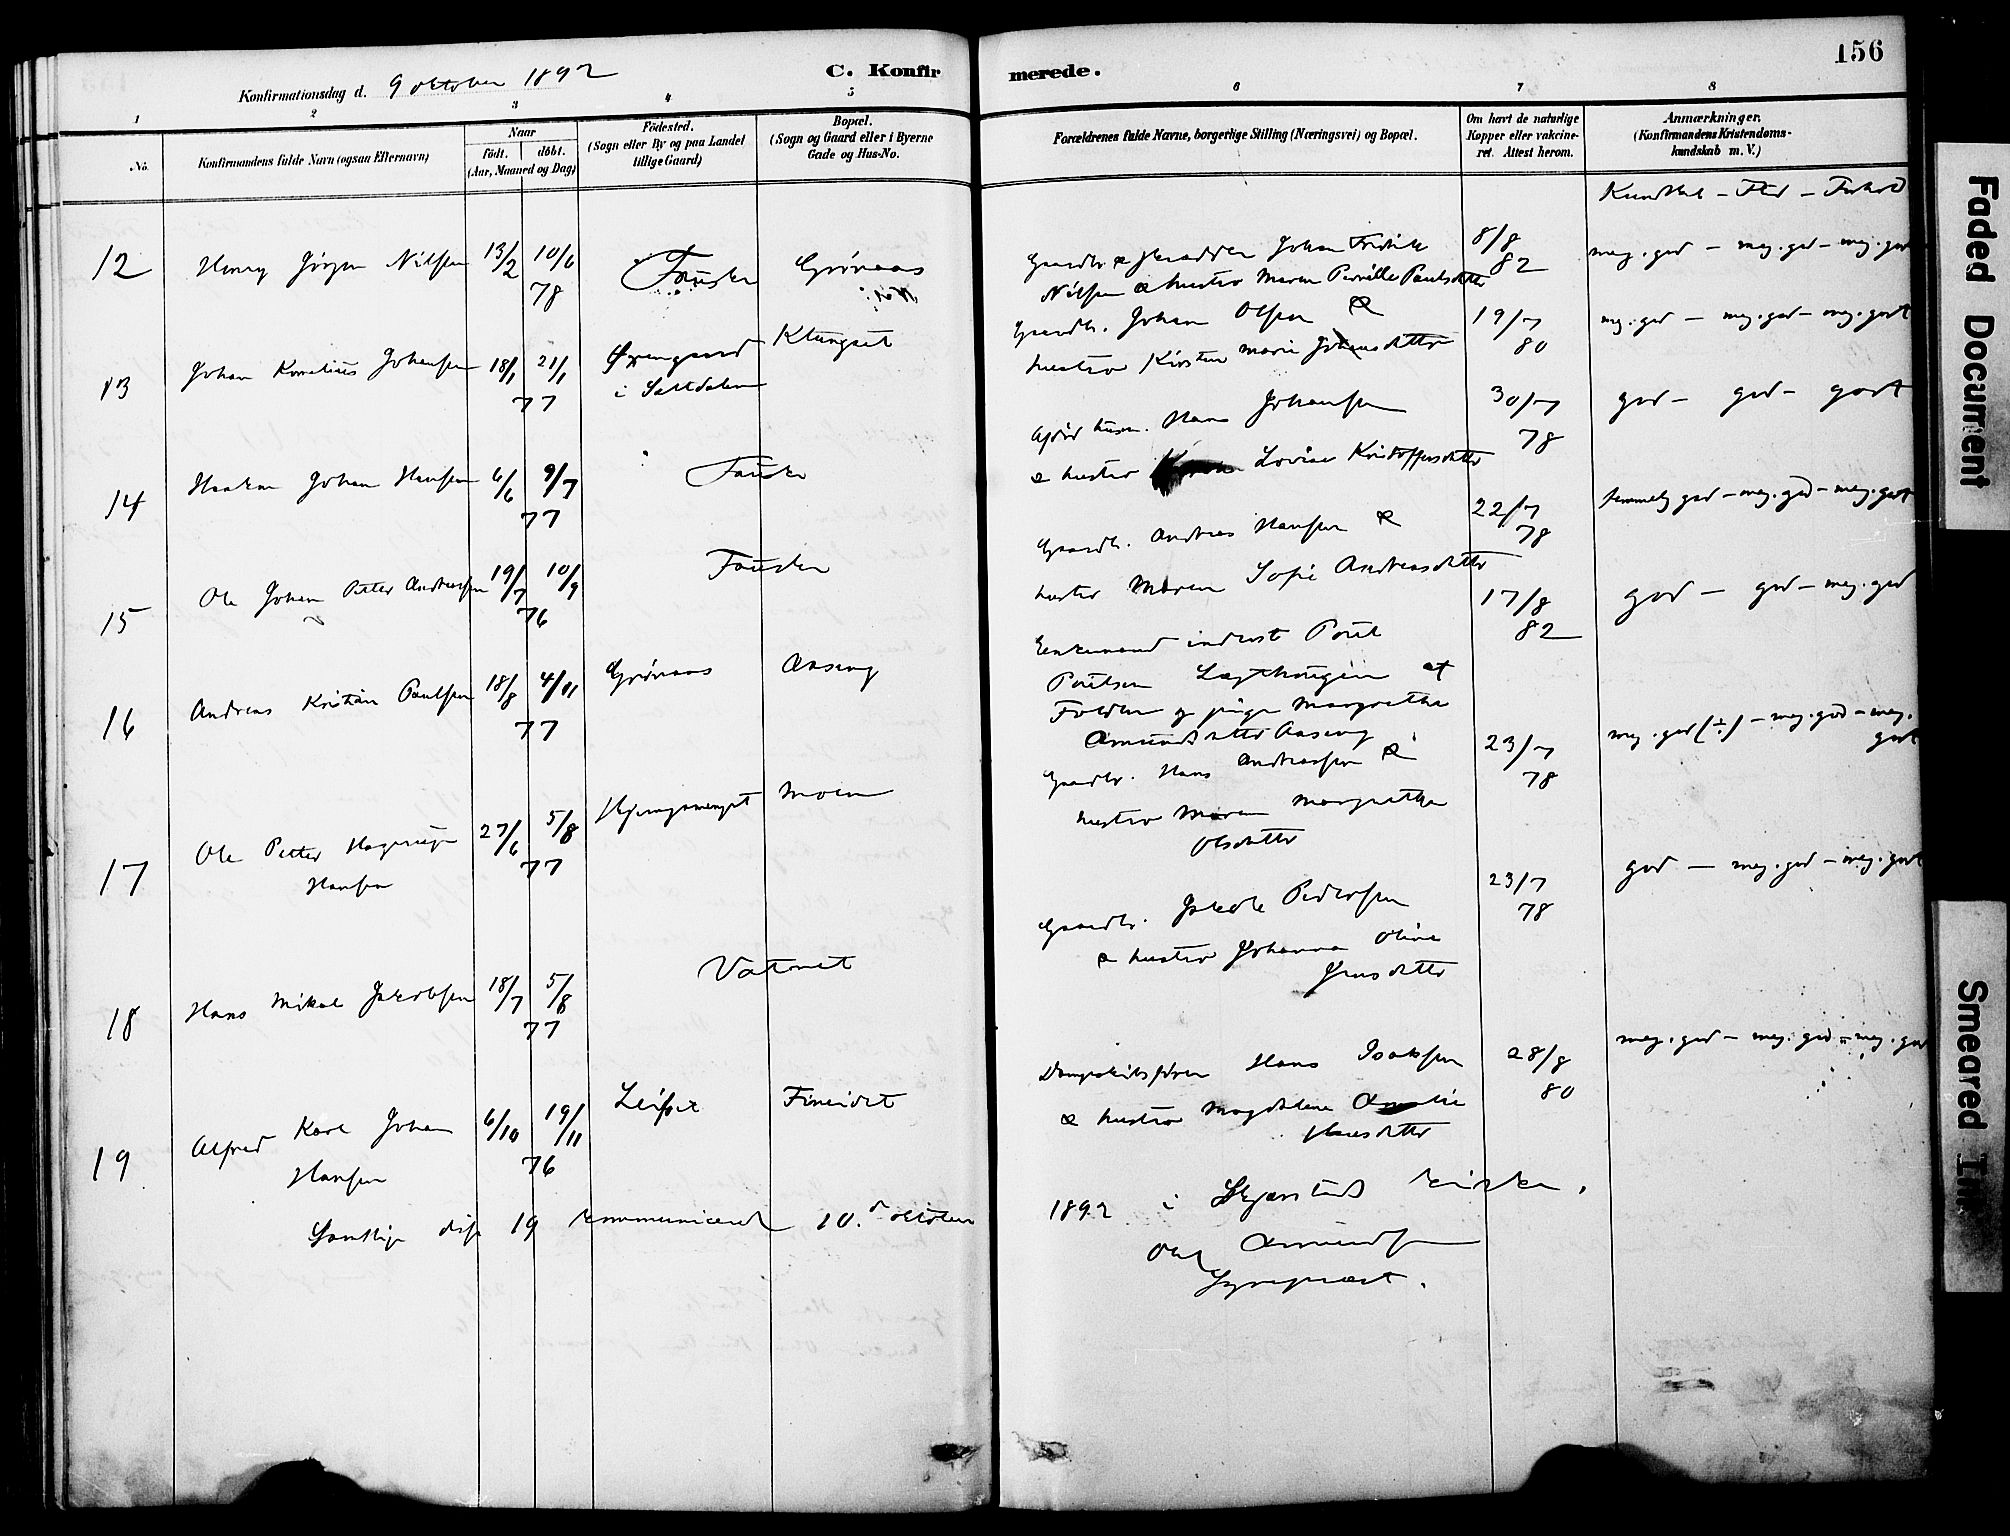 156
Konfirmationsdag d. 9 oktober 1892
C. Konfirmerede.
1 2 3 4 5 6 7 8
No.
Konfirmandens fulde Navn (ogsaa Efternavn)
Naar
födt. döbt.
(Aar, Maaned og Dag)
Födested.
(Sogn eller By og paa Landet
tillige Gaard)
Bopæl.
(Sogn og Gaard eller i Byerne
Gade og Hus-No.
Forældrenes fulde Navne, borgerlige Stilling (Næringsvei) og Bopæl.
Om havt de naturlige
Kopper eller vakcine-
ret. Attest herom.
Anmærkninger.
(Konfirmandens Kristendoms-
kundskab m. V.)
Kundskab – Flid – Forhold
12 Henry Jörgen Nilsen 13/2 10/6 78 Fauske Grönaas
Gaardbr. & Johan Fredrik
Nilsen & hustru Maren Pernille Paulsdatter
8/8 82
meg. god – meg. god – meg. godt
13 Johan Kornelius Johansen 18/1 21/1 77 Øxengaard i Saltdalen Klungset
Gaardbr. Johan Olsen &
hustru Kirsten Marie Johansdatter
19/7 80
meg. god – meg. god – meg. godt
14 Haakon Johan Hansen 6/6 9/7 77 Fauske
Hans Johansen
& hustru Lovise Kristoffersdatter
30/7 78
god – god – godt
15 Ole Johan Petter Andreassen 19/7 10/9 76 Fauske
Gaardbr. Andreas Hansen &
hustru Maren Sofie Andreasdatter
22/7 78
temmelig god – meg. god – meg. godt
16 Andreas Kristian Paulsen 18/8 4/11 77 Grönaas Aaseng
Enkemand inderst Poul
Poulsen af
Folden og pige Margrethe
Amundsdatter Aaseng
17/8 82
god – god – meg. god
17 Ole Petter Hagerup
Hansen 27/6 5/8 77 Moen
Gaardbr. Hans Andreassen &
hustru Maren Margrethe
Olsdatter
23/7 78
meg. god (÷) – meg. god – meg.
godt
18 Hans Mikal Jakobsen 18/7 5/8 77 Vatnet
Gaardbr. Jakob Pedersen
& hustru Johanna Oline
Jensdatter
23/7 78
god – meg. god – meg. godt
19 Alfred Karl Johan
Hansen 6/10 19/11 76 Leifset Finneidet
Dampskibsförer Hans Isaksen
& hustru Magdalena Amalie
Hansdatter
28/8 80
meg. god – meg. god – meg. god
Samtlige disse 19 kommunicerede 10. oktober 1892 i Skjerstad kirke.
Amundsen
Sogneprest.
Faded Document
Smeared Ink